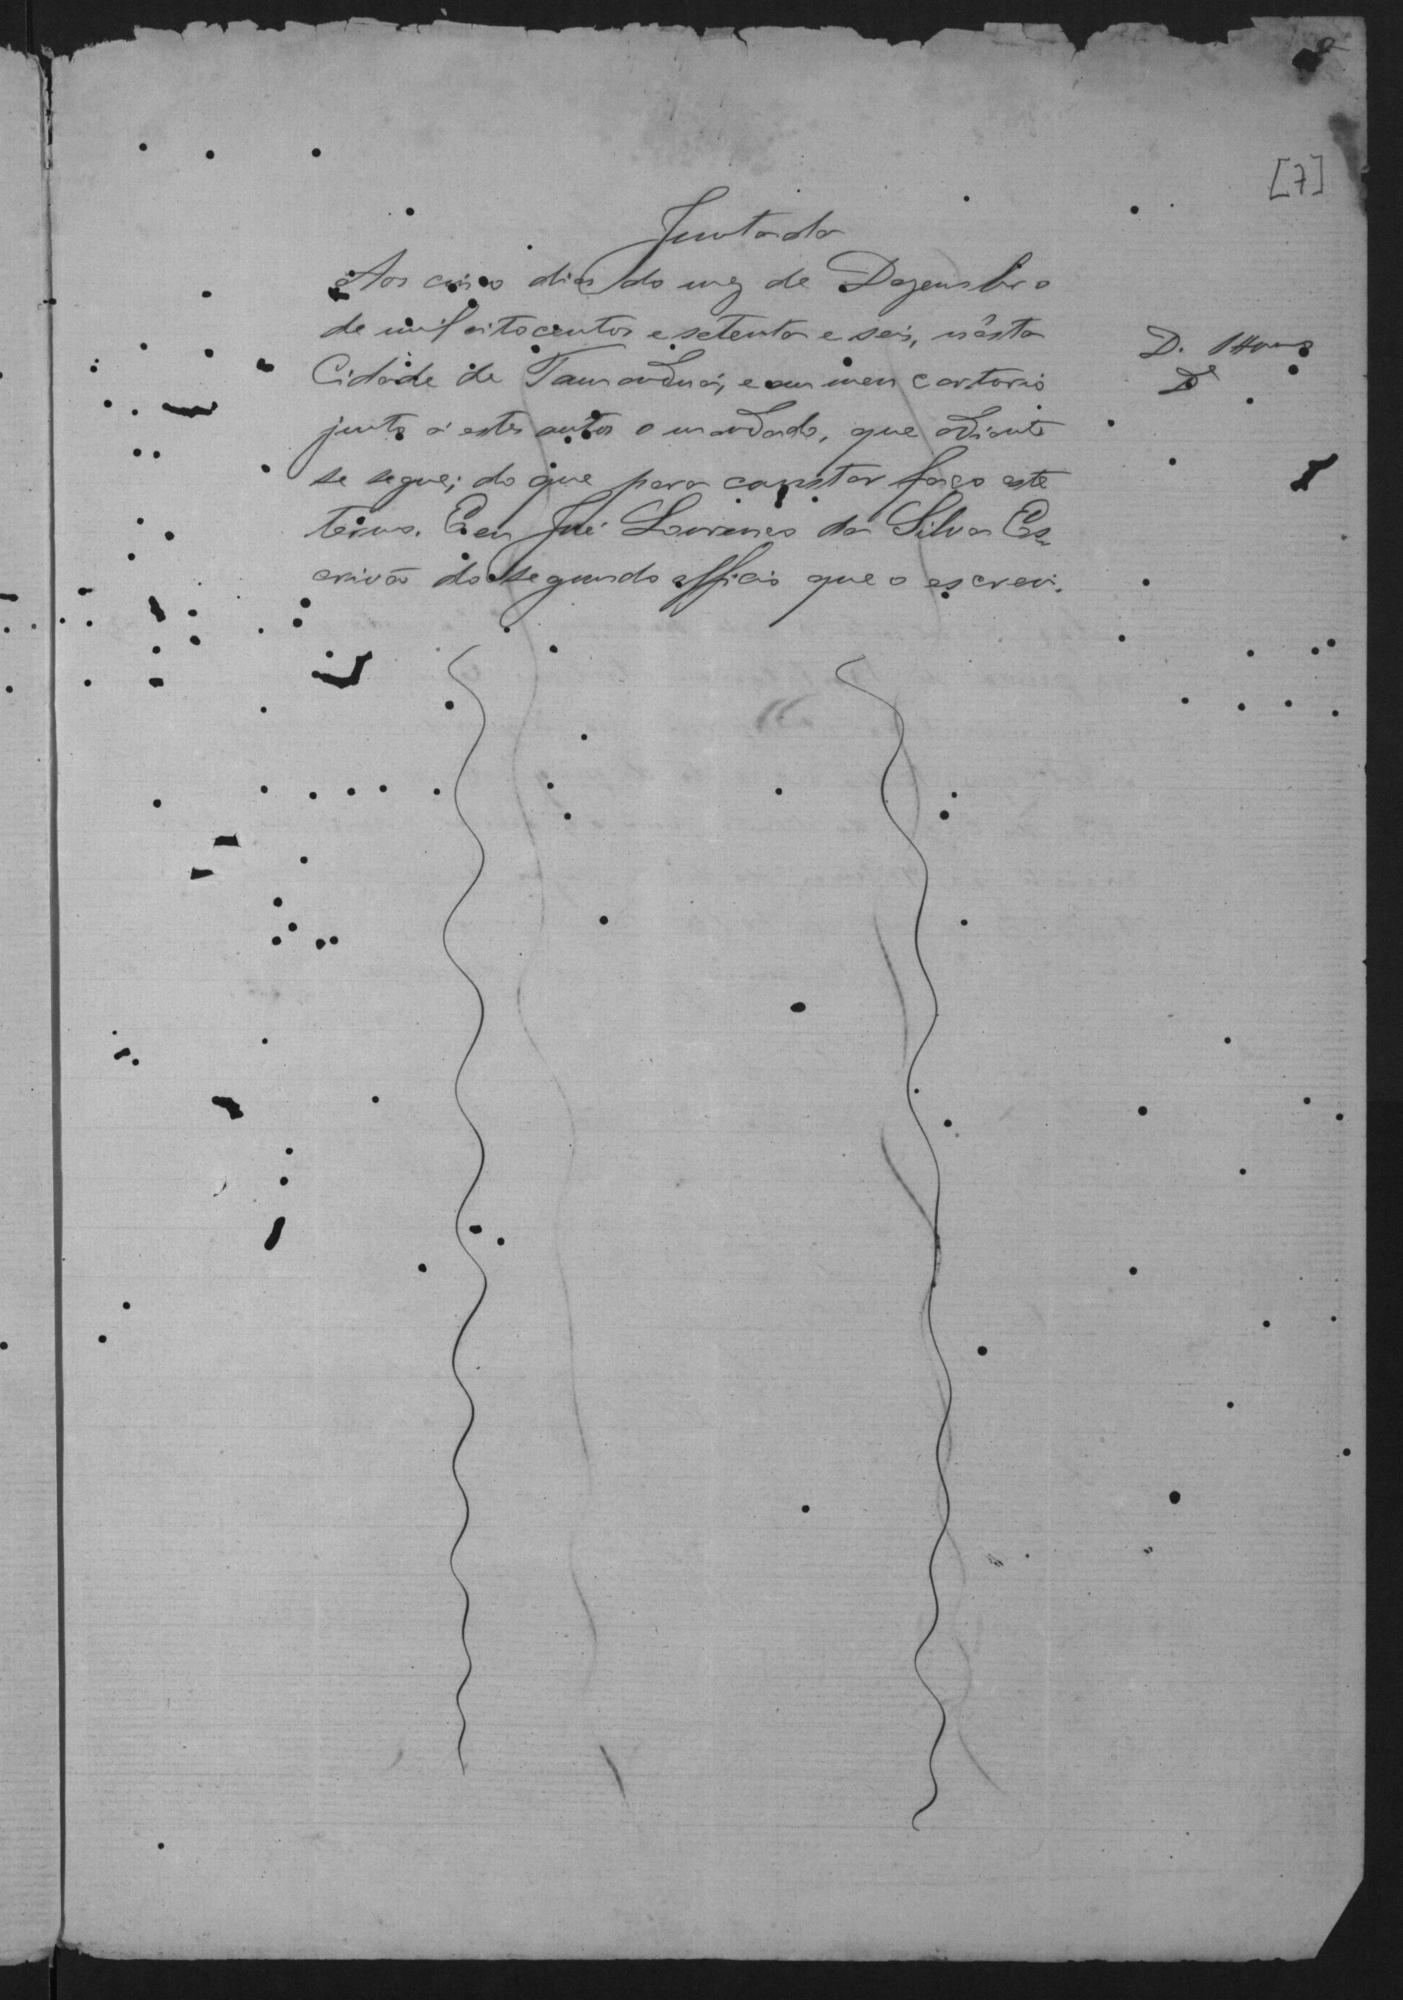 [7]
Juntada
Aos cinco dias do mez de Dezembro
de mil oitocentos e setenta e seis, n'esta
Cidade de Tamanduá, e em meu cartorio
junto a estes autos o mandado, que adiante
se segue; do que para constar faço este
termo. Eu José Lourenço da Silva Es
crivão do segundo officio que o escrevi.
D.